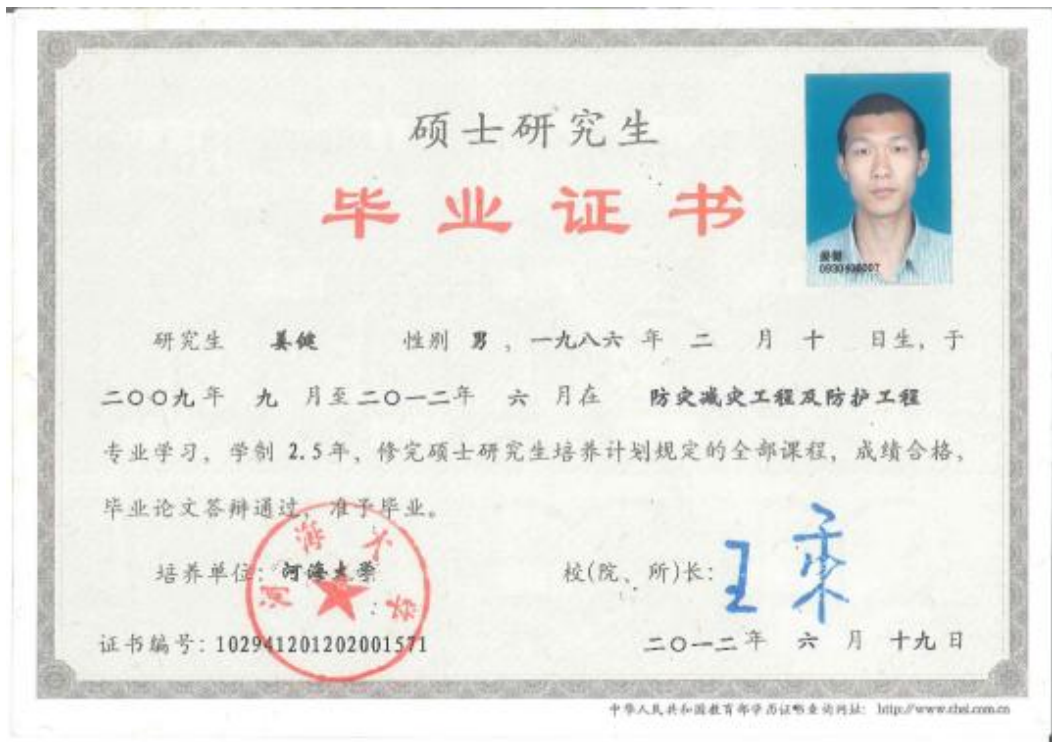 硕士研究生
毕业证书
姜健
0930490007
研究生 姜健 性别 男 ，一九八六 年 二 月 十 日生，于
二〇〇九年 九 月至二〇一二年 六 月在 防灾减灾工程及防护工程
专业学习，学制 2.5年，修完硕士研究生培养计划规定的全部课程，成绩合格，
毕业论文答辩通过，准予毕业。
河海大学
培养单位：河海大学 校(院、所)长：
证书编号：102941201202001571 二〇一二年 六 月 十九日
中华人民共和国教育部学历证书查询网址： http://www.chsi.com.cn